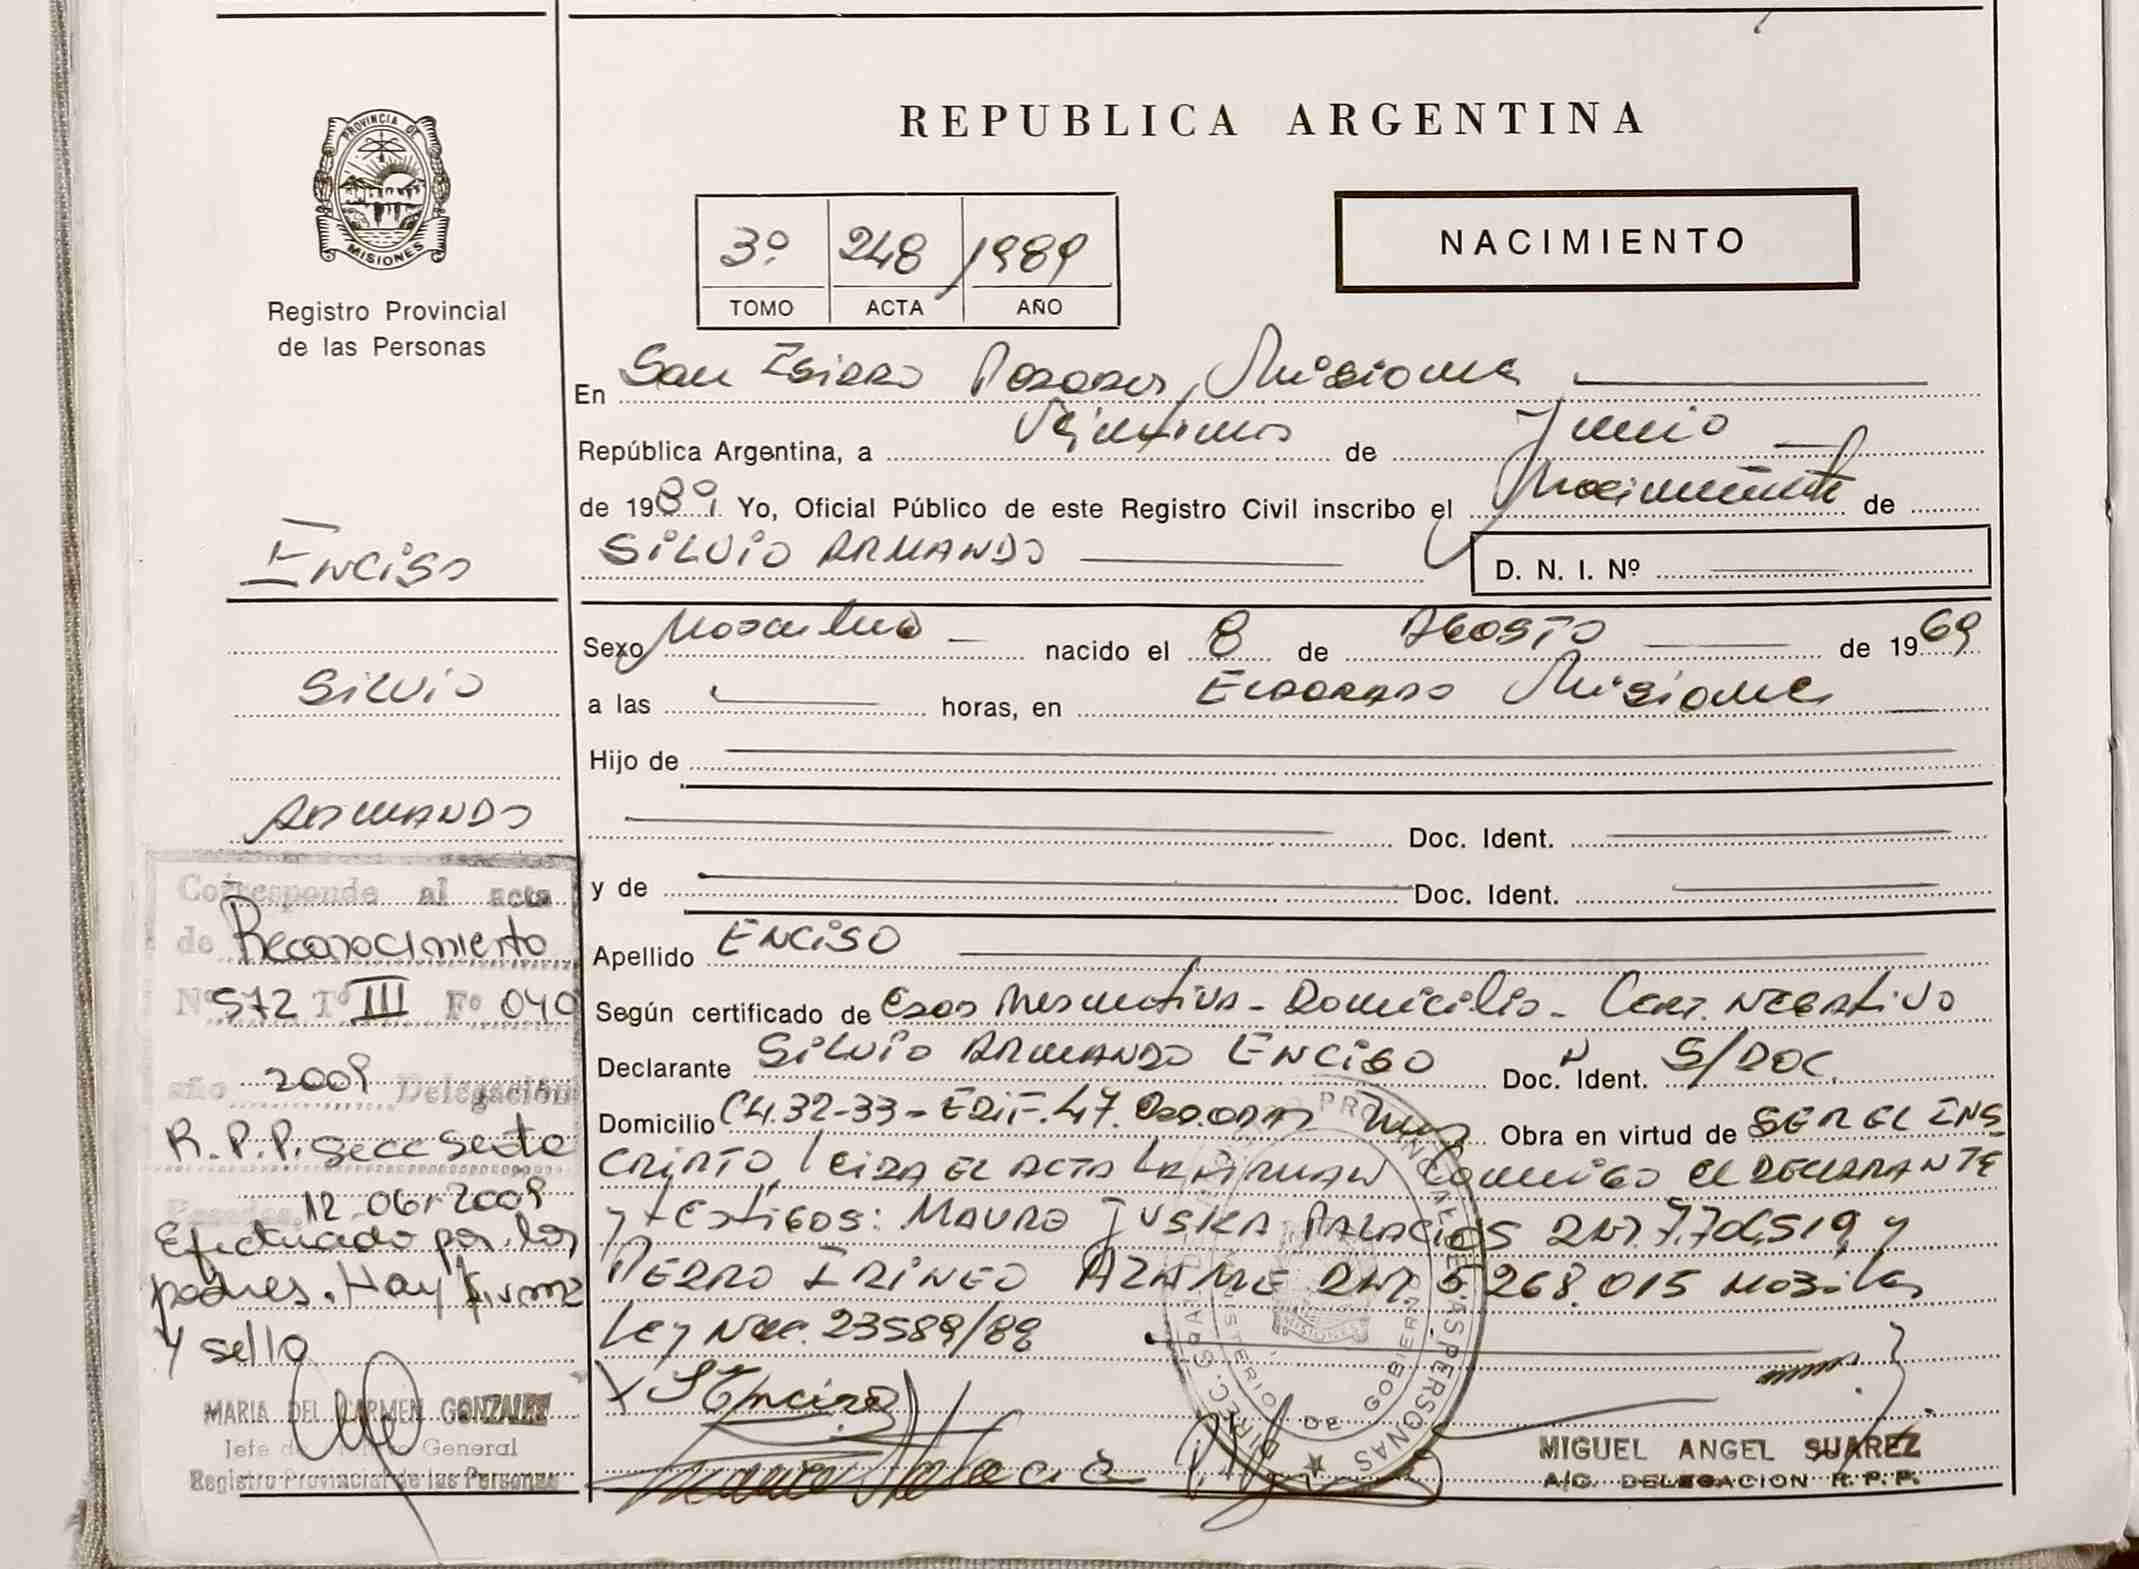 PROVINCIA DE
MISIONES
Registro Provincial
de las Personas
ENCISO
SILVIO
ARMANDO
Corresponde al acta
de Reconocimiento
Nº 572 Tº III Fº 040
año 2009 Delegación
R.P.P. Secc Sexta
Posadas, 12-06-2009
Efectuado por los
padres. Hay firma
y sello
MARIA DEL CARMEN GONZALEZ
Jefe de General
Registro Provincial de las Personas
REPUBLICA ARGENTINA
3º 248 1989
TOMO ACTA AÑO
NACIMIENTO
En San Isidro Posadas, Misiones
República Argentina, a de Junio
de 1989. Yo, Oficial Público de este Registro Civil inscribo el Nacimiento de
SILVIO ARMANDO
D. N. I. Nº
Sexo Masculino nacido el 8 de AGOSTO de 1969
a las horas, en ELDORADO Misiones
Hijo de
Doc. Ident.
y de Doc. Ident.
Apellido ENCISO
Según certificado de Domicilio - Cert. NEGATIVO
Declarante SILVIO ARMANDO ENCISO Doc. Ident. S/DOC.
Domicilio CH. 32-33 - EDIF. 47. Obra en virtud de SER EL INS
CRIPTO, LEIDA EL ACTA LA FIRMAN Conmigo EL DECLARANTE
y tEStiGOS: MAURO PALACIOS y
PEDRO IRINEO 5.268.015
Ley Nac. 23589/89
S Enciso
MIGUEL ANGEL SUAREZ
A/C. DELEGACION R. P. P.